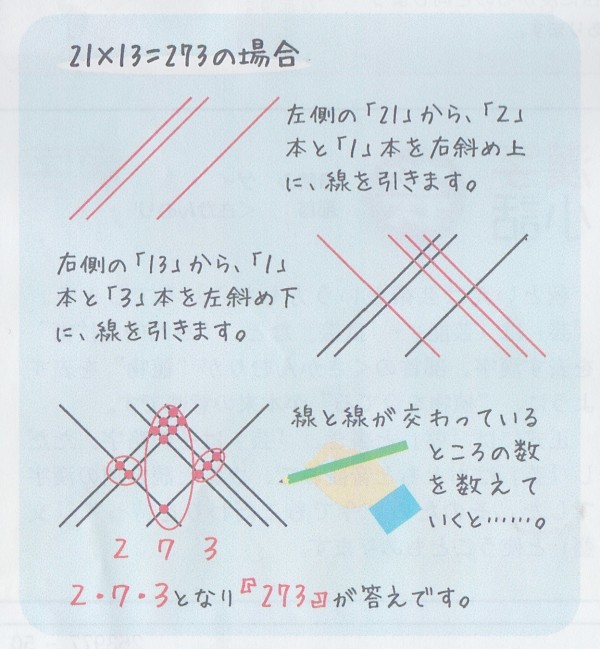 21×13=273の場合
左側の「21」から、「2」
本と「1」本を右斜め上
に、線を引きます。
右側の「13」から、「1」
本と「3」本を左斜め下
に、線を引きます。
線と線が交わっている
ところの数
を数えて
いくと……。
2 7 3
2・7・3となり『273』が答えです。
小話